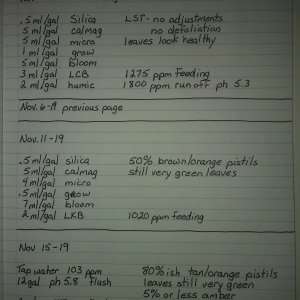 .5 ml/gal Silica LST - no adjustments
5 ml/gal calmag no defoliation
5 ml/gal micro leaves look healthy
1 ml/gal grow
5 ml/gal bloom
3 ml/gal LCB 1275 ppm feeding
2 ml/gal humic 1800 ppm run off ph 5.3
Nov. 6-19 previous page
Nov. 11-19
.5 ml/gal silica 50% brown/orange pistils
5 ml/gal calmag still very green leaves
4 ml/gal micro
.5 ml/gal grow
7 ml/gal bloom
2 ml/gal LKB 1020 ppm feeding
Nov 15-19
Tap water 103 ppm 80% ish tan/orange pistils
12gal ph 5.8 flush leaves still very green
5% or less amber